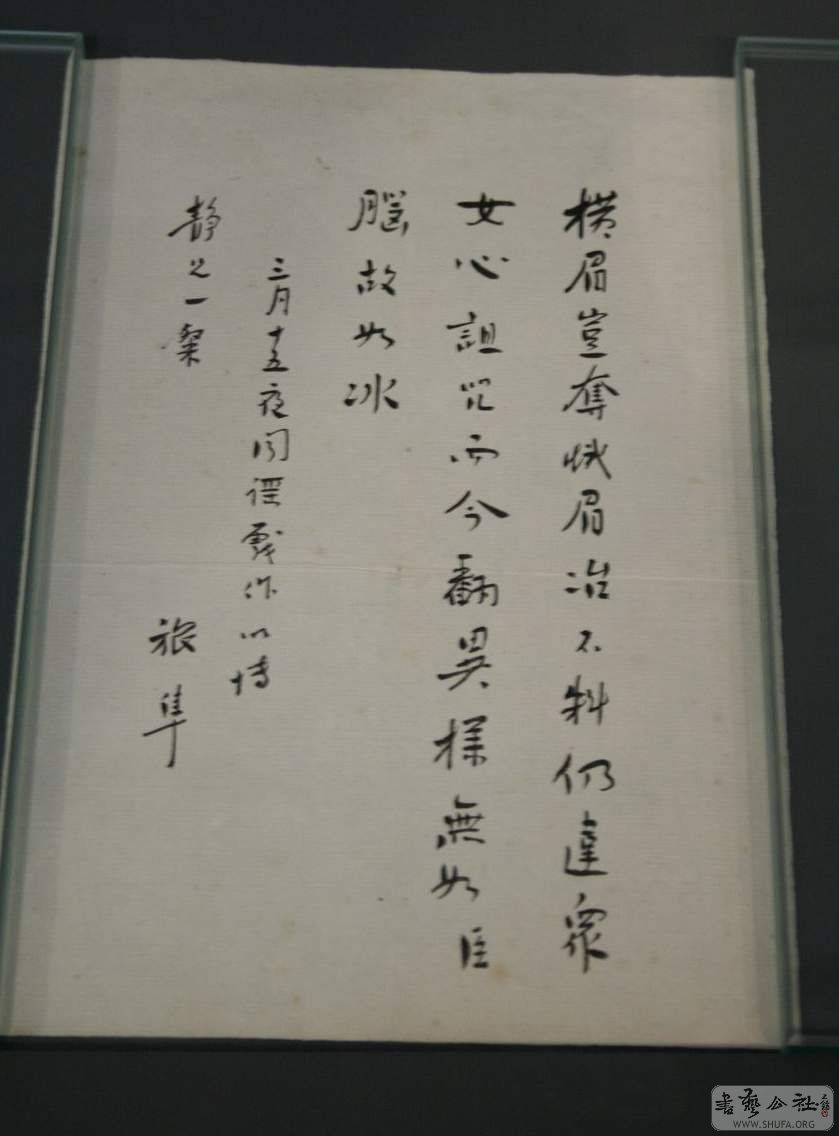 横眉豈奪蛾眉冶不料仍違眾
女心詛咒而今翻異樣無如臣
腦故如冰
三月十五夜聞謡戲作以博
静兄一粲
旅隼
書藝公社
WWW.SHUFA.ORG